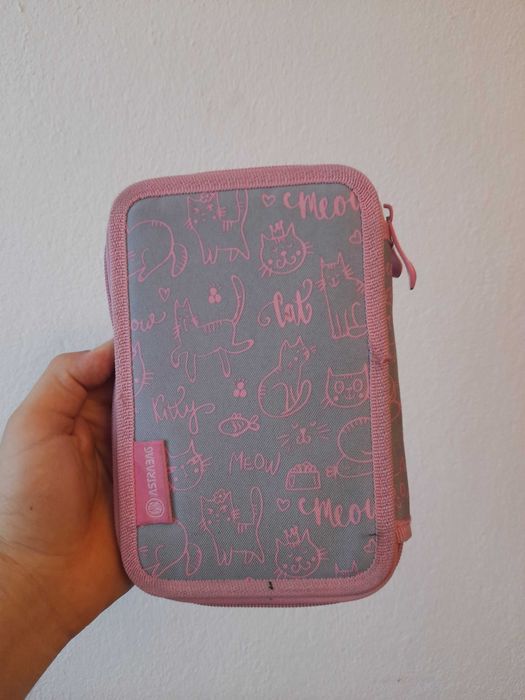 Meow
Cat
Kitty
MEOW
Meow
ASTRABAG